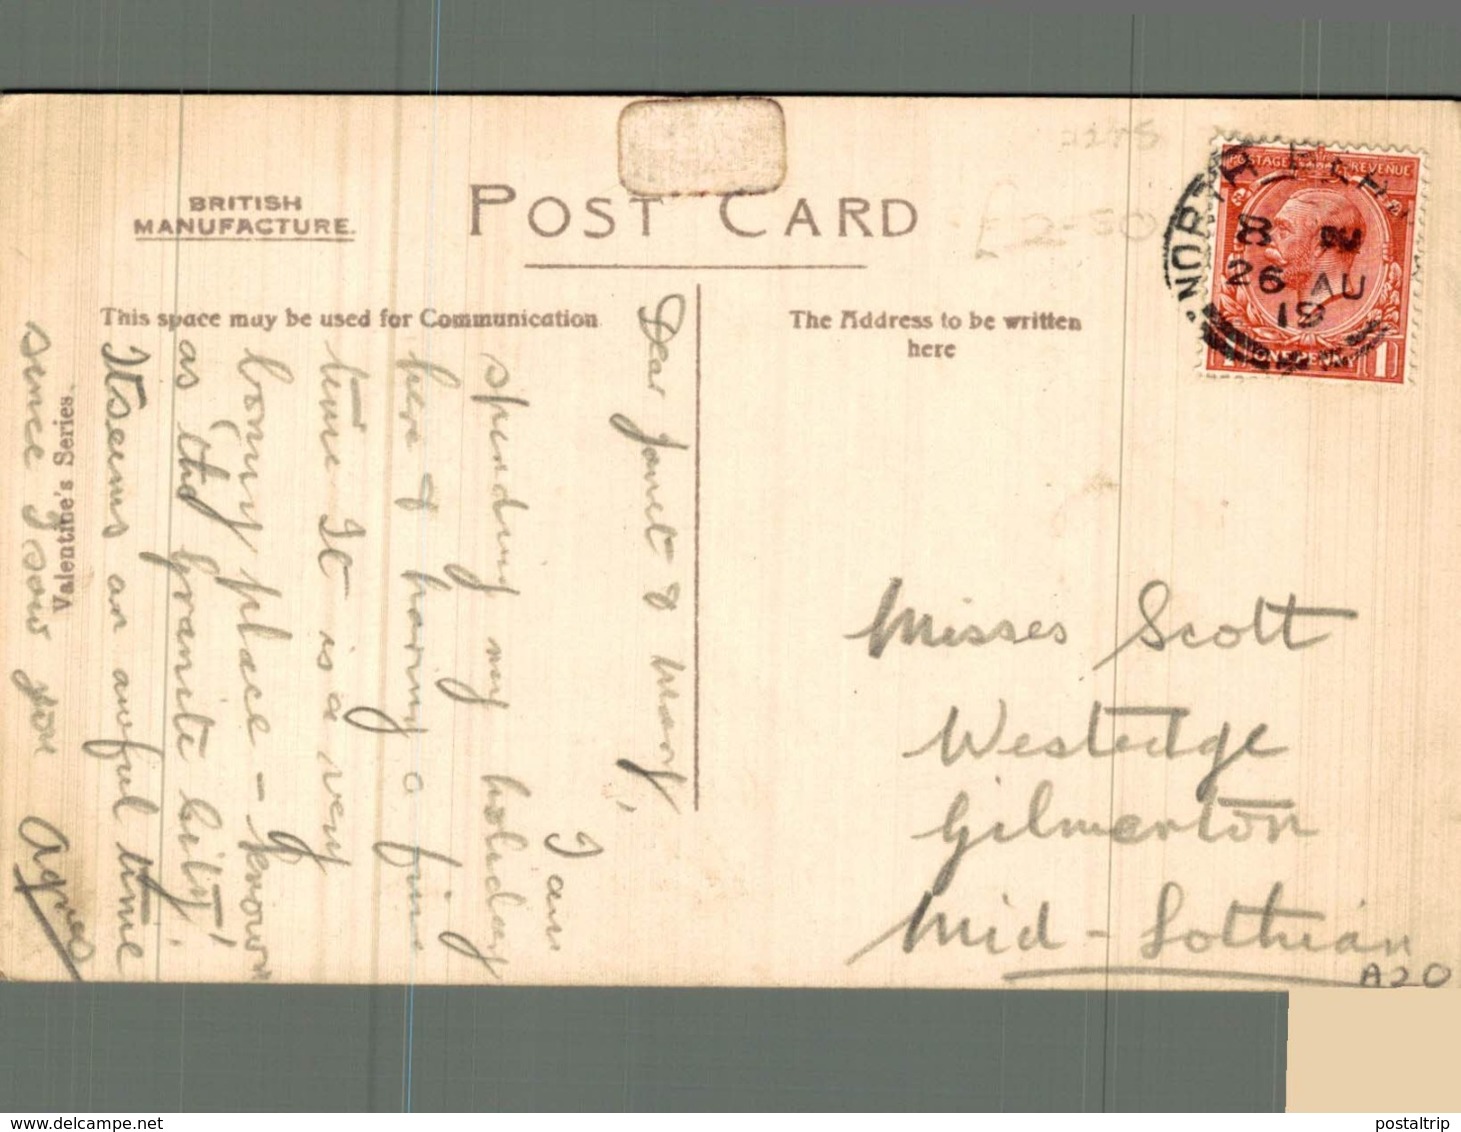 BRITISH
MANUFACTURE.
POST CARD
This space may be used for Communication
The Address to be written
here
Valentine's Series.
Dear Janet & Mary,
I am
spending my holiday
here & having a fine
time It is a very
bonny place - known
as the granite city.
It seems an awful time
since I saw you
Agnes
Misses Scott
Westedge
Gilmerton
Mid-Lothian
A20
£2-50
POSTAGE REVENUE
NORTH
8
26 AU
19
1
1
www.delcampe.net
postaltrip